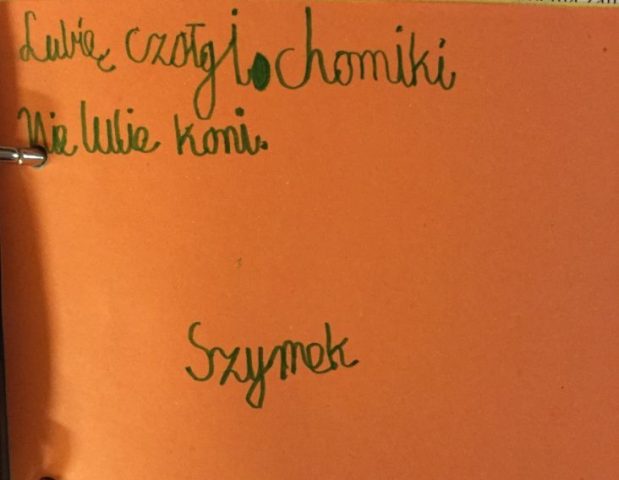 Lubię czołgi chomiki
Nie lubie koni.
Szymek